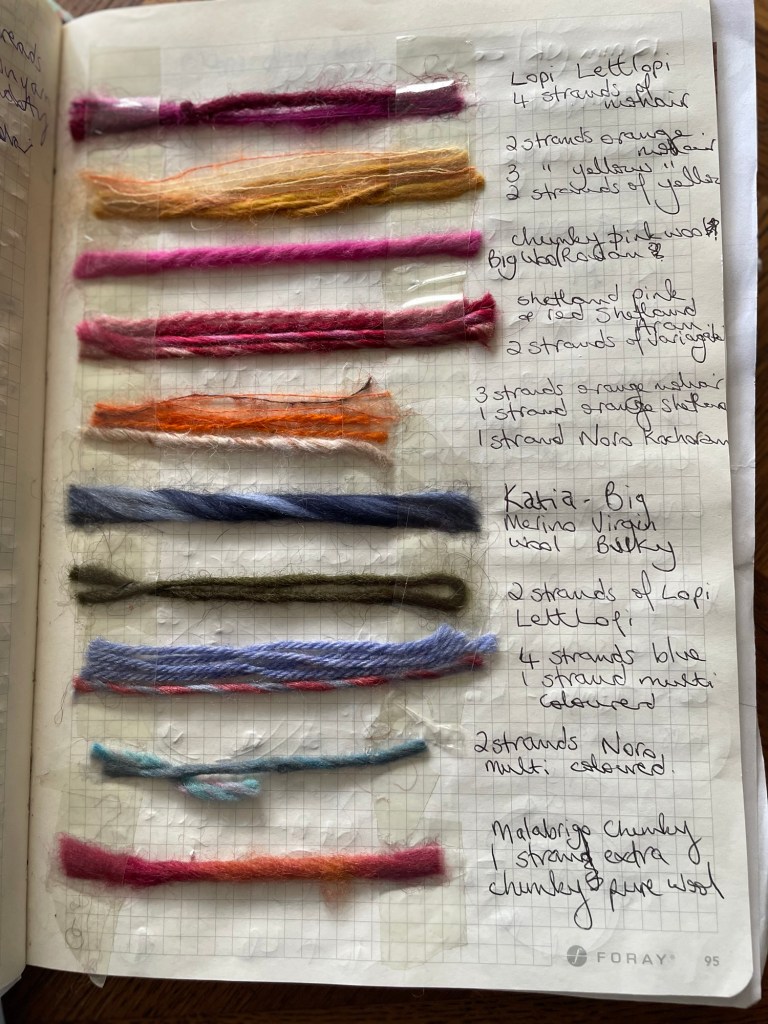 Lopi Lettlopi
4 strands of
mohair
2 strands orange
mohair
3 " yellow "
2 strands of yellow
chunky pink wool
Big Wool Rowan
Shetland pink
& red Shetland
2 strands of
3 strands orange mohair
1 strand orange Shetland
1 strand Noro
Katia - Big
Merino Virgin
Wool Bulky
2 strands of Lopi
Lettlopi
4 strands blue
1 strand multi
coloured
2 strands Noro
multi coloured.
Malabrigo Chunky
1 strand extra
chunky pure wool
FORAY 95